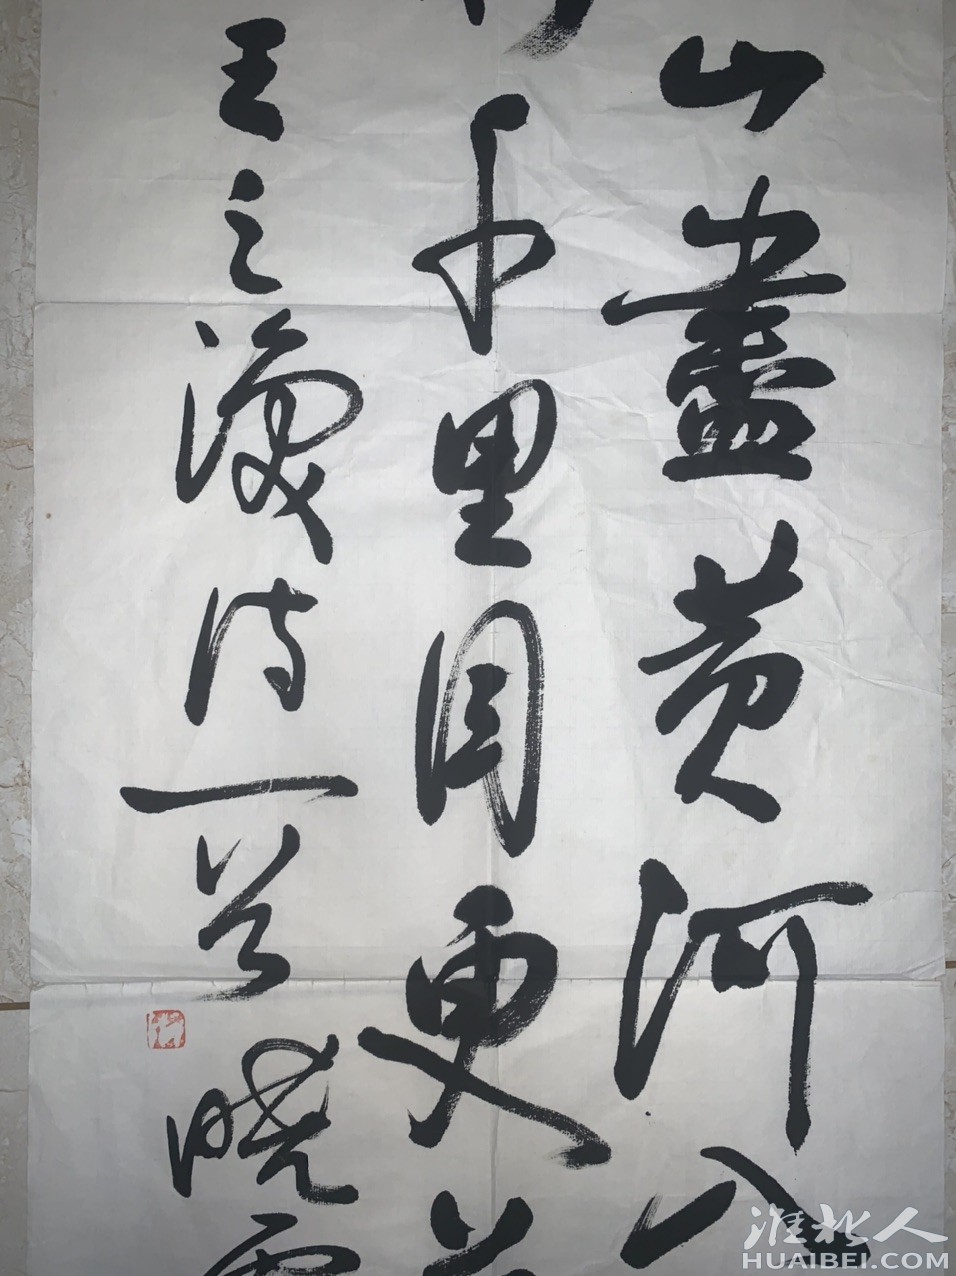 山盡黄河入
千里目更
王之渙诗一首 晓
淮北人
HUAIBEI.COM